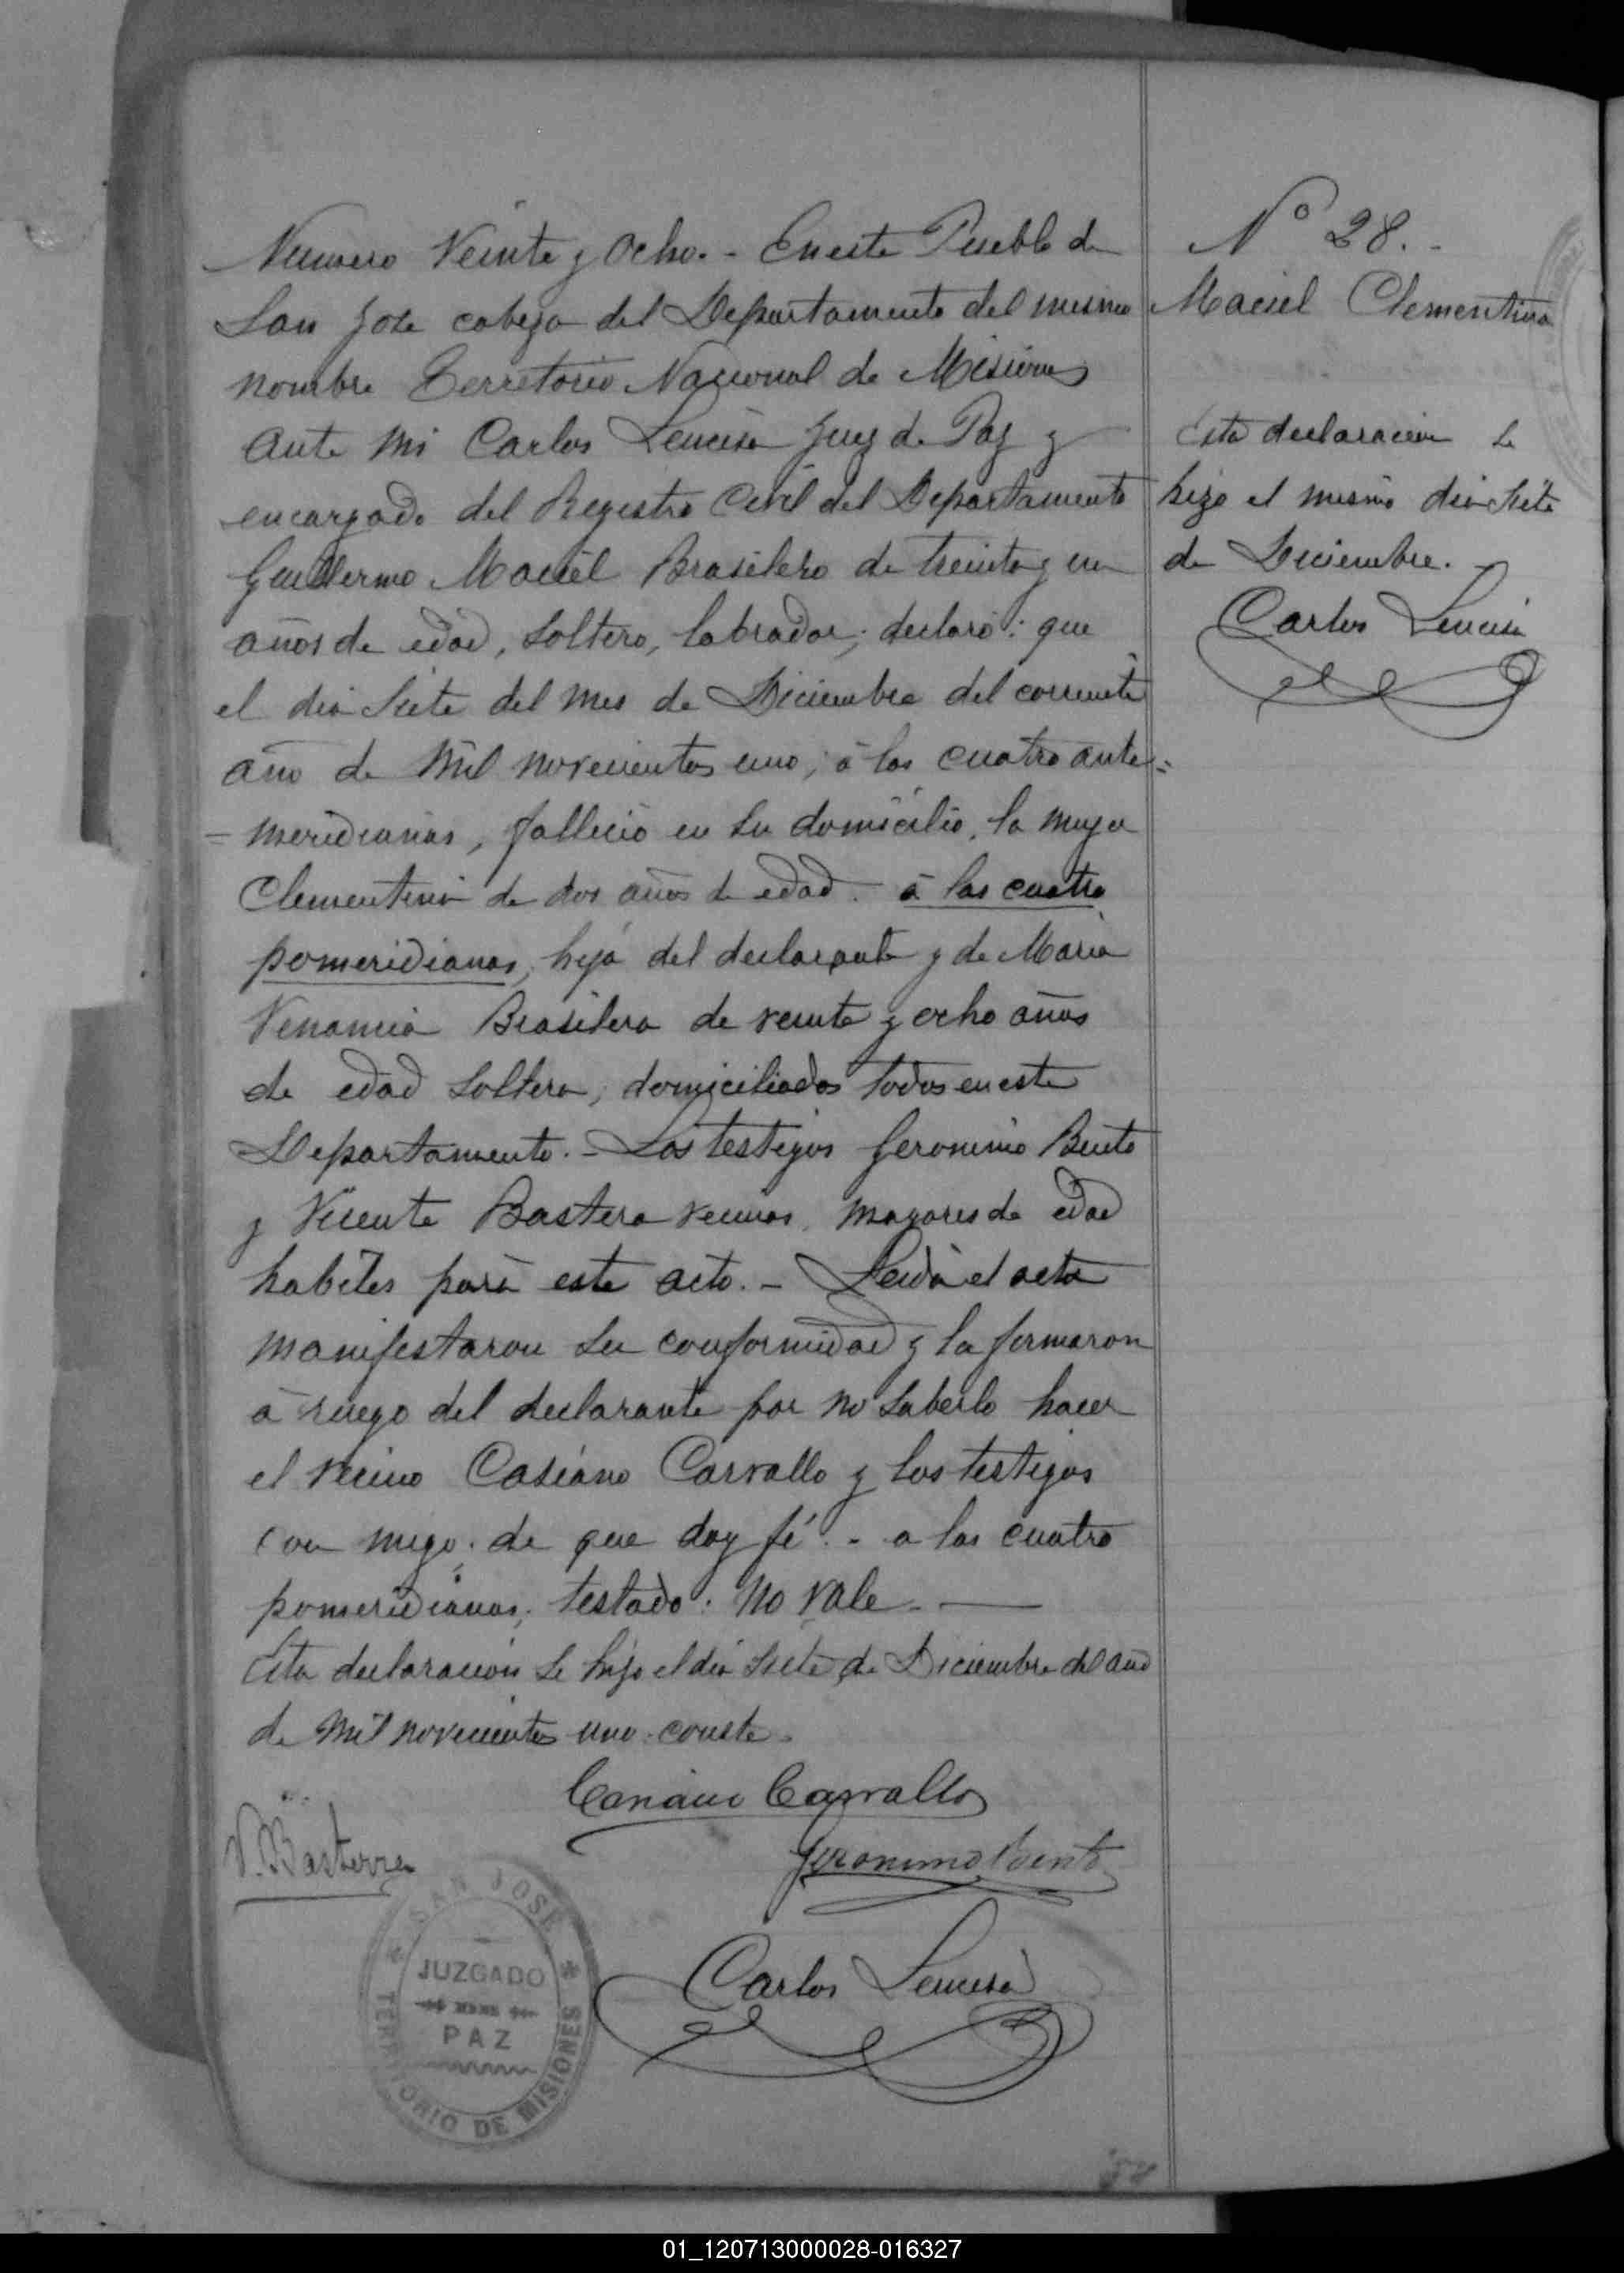 Numero Veinte y Ocho. - En este Pueblo de
San Jose cabeza del Departamento del mismo
nombre Territorio Nacional de Misiones
ante mi Carlos Leucisa Juez de Paz y
encargado del Registro Civil del Departamento
Guillermo Maciel Brasilero de treinta y un
años de edad, soltero, labrador; declaró: que
el dia Siete del mes de Diciembre del corriente
año de mil novecientos uno, á las cuatro ante=
= meridianas, falleció en su domicilio, la mujer
Clementina de dos años de edad. á las cuatro
pomeridianas, hija del declarante y de Maria
Venancia Brasilera de veinte y ocho años
de edad soltera, domiciliados todos en este
Departamento. - Los testigos Geronimo Bento
y Vicente Bastera vecinos, mayores de edad
habiles para este acto. - Leida el acta
manifestaron su conformidad y la firmaron
á ruego del declarante por no saberlo hacer
el vecino Casiano Carvallo y los testigos
con migo, de que doy fé. - a las cuatro
pomeridianas, testado: no vale. —
Esta declaracion se hizo el dia Siete de Diciembre del año
de mil novecientos uno. conste.
Casiano Carvallo
V. Basterra
Geronimo Bento
Carlos Leucisa
SAN JOSE
JUZGADO
PAZ
TERRITORIO DE MISIONES
Nº 28. -
Maciel Clementina
Esta declaracion se
hizo el mismo dia Siete
de Diciembre. -
Carlos Leucisa
01_120713000028-016327